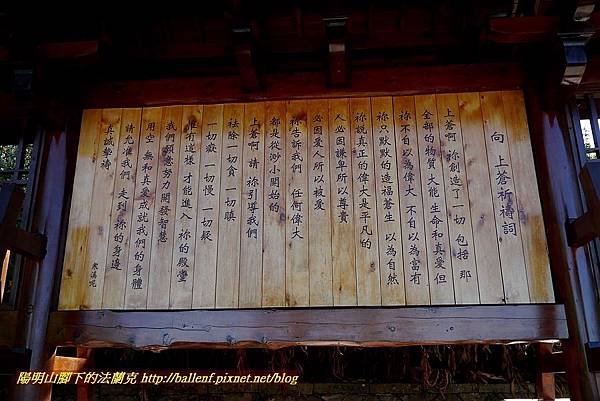 向 上蒼祈禱詞
上蒼啊 祢創造了一切 包括 那
全部的物質 大能 生命和 真愛 但
祢不自以為偉大 不自以為富有
祢只默默的造福蒼生 以為自然
祢說真正的偉大 是平凡的
人必因謙卑所以尊貴
必因愛人所以被愛
祢告訴我們 任何偉大
都是從渺小開始的
上蒼啊 請 祢引導我們
祛除一切貪 一切瞋
一切癡 一切慢 一切疑
唯有這樣 才能進入 祢的殿堂
我們願意努力開發智慧
用空 無和真愛成就我們的身體
請允准我們 走到 祢的身邊
真誠摯禱
陽明山腳下的法蘭克 http://ballenf.pixnet.net/blog